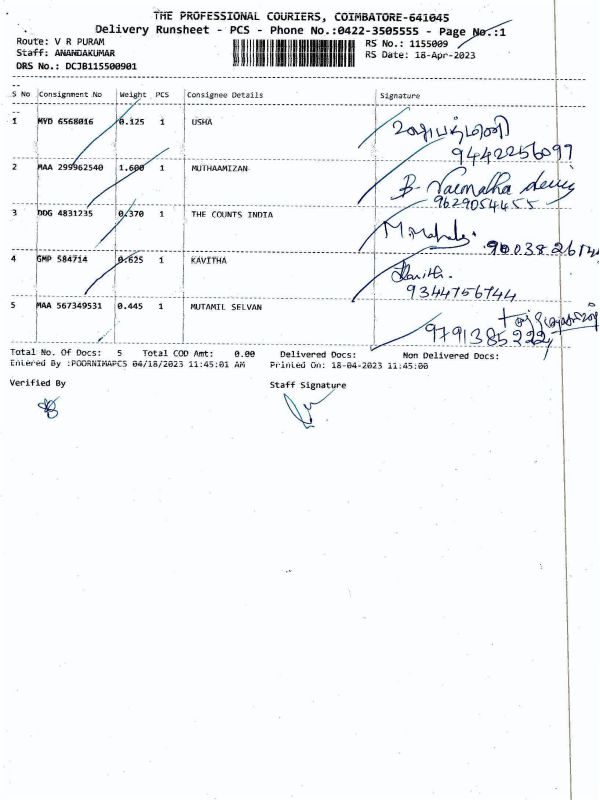 THE PROFESSIONAL COURIERS, COIMBATORE-641045
Delivery Runsheet - PCS - Phone No.:0422-3505555 - Page No.:1
Route: V R PURAM RS No.: 1155009
Staff: ANANDAKUMAR RS Date: 18-Apr-2023
DRS No.: DCJB115500901
S No Consignment No Weight PCS Consignee Details Signature
1 MYD 6568016 0.125 1 USHA
9442256097
2 MAA 299962540 1.600 1 MUTHAAMIZAN
B.
9629054455
3 DDG 4831235 0.370 1 THE COUNTS INDIA
4 GMP 584714 0.625 1 KAVITHA
9344756744
5 MAA 567349531 0.445 1 MUTAMIL SELVAN
9791385222
Total No. Of Docs: 5 Total COD Amt: 0.00 Delivered Docs: Non Delivered Docs:
Entered By :POORNIMAPCS 04/18/2023 11:45:01 AM Printed On: 18-04-2023 11:45:00
Verified By Staff Signature